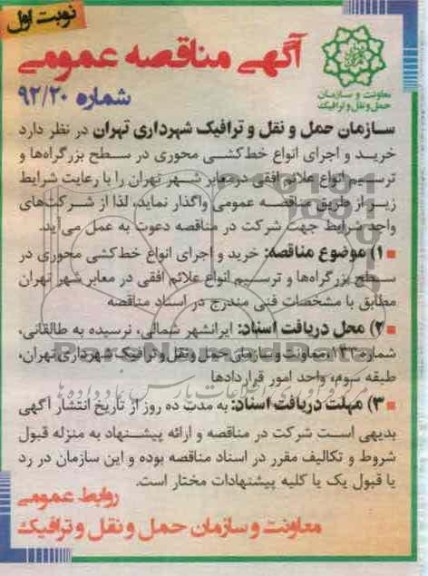 نوبت اول
آگهی مناقصه عمومی
شماره ۹۲/۲۰
معاونت و سازمان
حمل و نقل و ترافیک
سازمان حمل و نقل و ترافیک شهرداری تهران در نظر دارد
خرید و اجرای انواع خط‌کشی محوری در سطح بزرگراه‌ها و
ترسیم انواع علائم افقی در معابر شهر تهران را با رعایت شرایط
زیر از طریق مناقصه عمومی واگذار نماید، لذا از شرکت‌های
واجد شرایط جهت شرکت در مناقصه دعوت به عمل می‌آید.
۱) موضوع مناقصه: خرید و اجرای انواع خط‌کشی محوری در
سطح بزرگراه‌ها و ترسیم انواع علائم افقی در معابر شهر تهران
مطابق با مشخصات فنی مندرج در اسناد مناقصه
۲) محل دریافت اسناد: ایرانشهر شمالی، نرسیده به طالقانی،
شماره معاونت و سازمان حمل و نقل و ترافیک شهرداری تهران،
طبقه سوم، واحد امور قراردادها
۳) مهلت دریافت اسناد: به مدت ده روز از تاریخ انتشار آگهی
بدیهی است شرکت در مناقصه و ارائه پیشنهاد به منزله قبول
شروط و تکالیف مقرر در اسناد مناقصه بوده و این سازمان در رد
یا قبول یک یا کلیه پیشنهادات مختار است.
روابط عمومی
معاونت و سازمان حمل و نقل و ترافیک
ParsNamadData